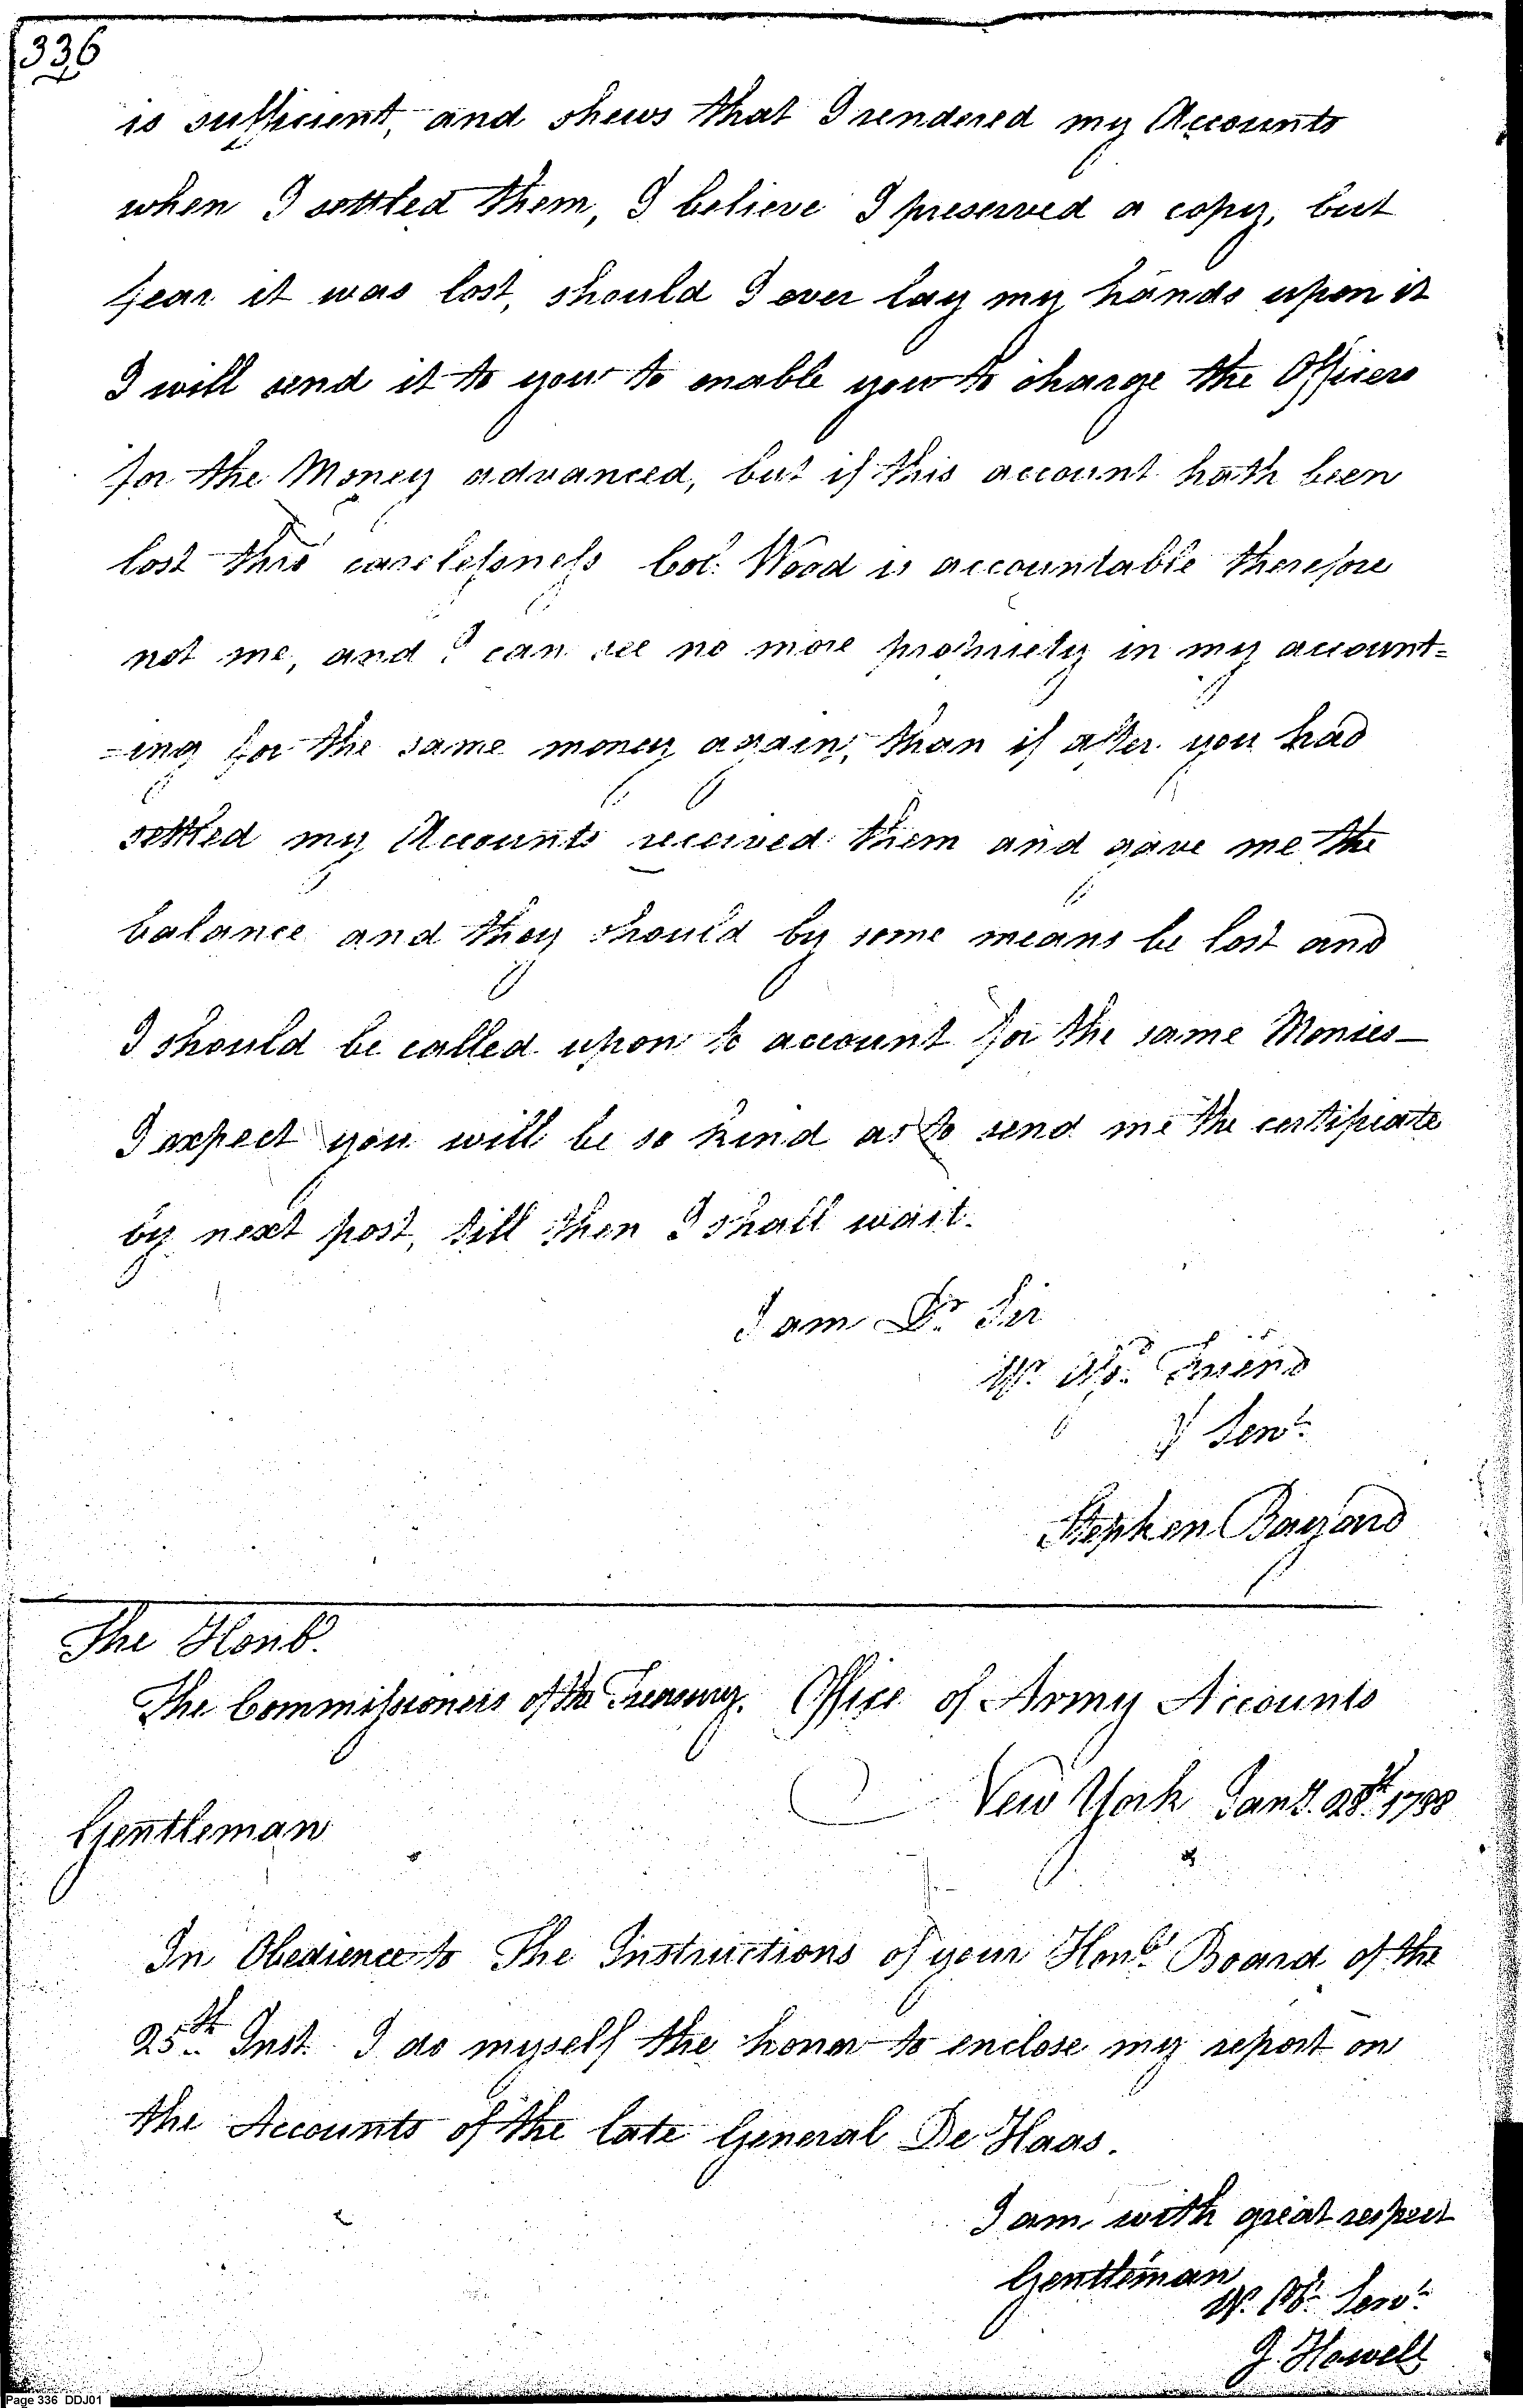 336
is sufficient, and shews that I rendered my Accounts
when I settled them, I believe I preserved a copy, but
fear it was lost, should I ever lay my hands upon it
I will send it to you to enable you to charge the Officers
for the Money advanced, but if this account hath been
lost thro' carelessness Col. Wood is accountable therefore
not me, and I can see no more propriety in my account=
=ing for the same money again, than if after you had
settled my Accounts received them and gave me the
balance and they should by some means be lost and
I should be called upon to account for the same Monies—
I expect you will be so kind as to send me the certificate
by next post, till then I shall wait.
I am Dr. Sir
Yr. Friend
& Servt.
Stephen Bayard
The Honb.
The Commissioners of the Treasury. Office of Army Accounts
New York Jany. 28th 1788
Gentleman
In Obedience to The Instructions of your Honbl. Board of the
25th Inst. I do myself the honor to enclose my report on
the Accounts of the late General De Haas.
I am with great respect
Gentleman
Yr. Ob. Servt.
J. Howell
Page 336 DDJ01